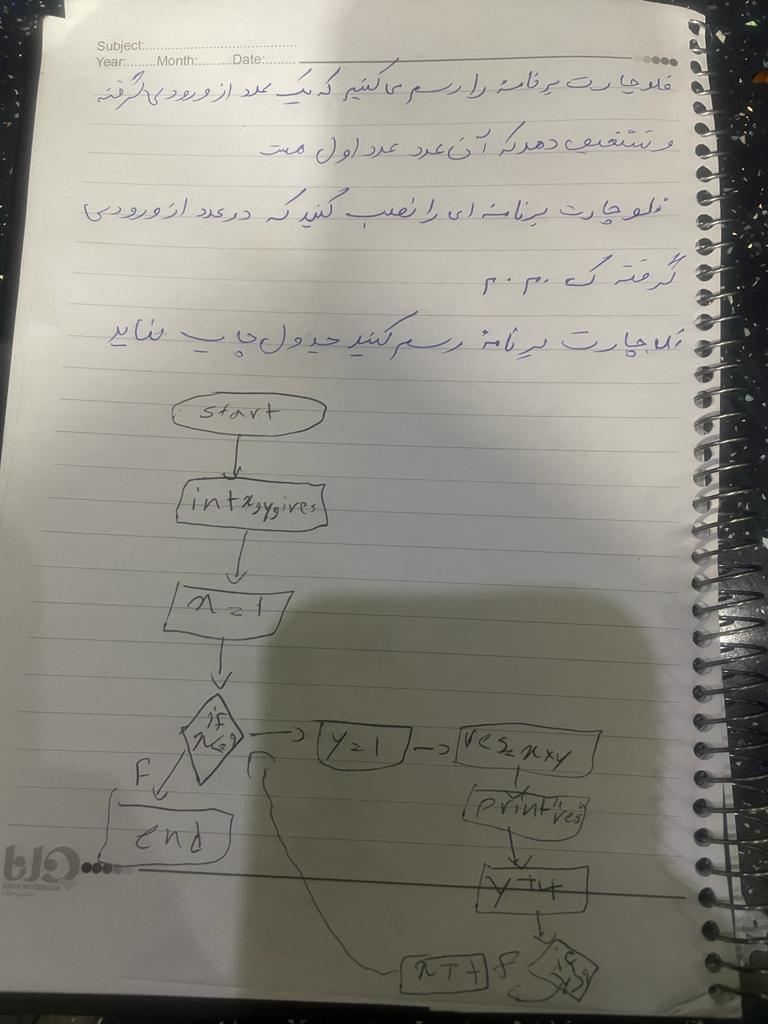 Subject:
Year: Month: Date:
فلوچارت برنامهٔ را رسم می کنیم که یک عدد از ورودی گرفته
و تشخیص دهد که آن عدد عدد اول هست
فلوچارت برنامه ای را نصب کنید که در عدد از ورودی
گرفته ک .م .م
فلوچارت برنامهٔ رسم کنید جدول چاپ نماید
start
int x,y,i,res
x=1
if
y=1
res=x*y
F
print "res"
end
y++
if
f
x++